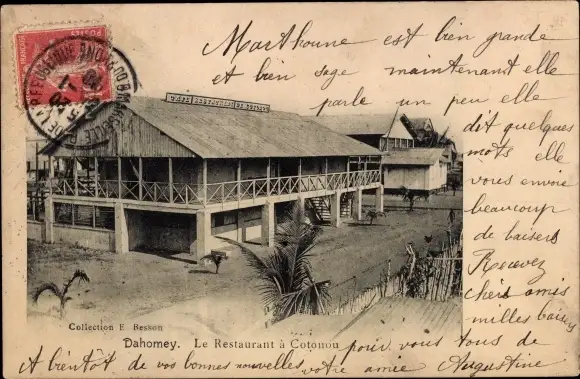 Marthoune est bien grande
et bien sage maintenant elle
parle un peu elle
dit quelques
mots elle
vous envoie
beaucoup
de baisers
Recevez
chers amis
milles baisers
pour vous tous de
Augustine
A bientôt de vos bonnes nouvelles votre amie
Collection E Besson
Dahomey. Le Restaurant à Cotonou
POSTES